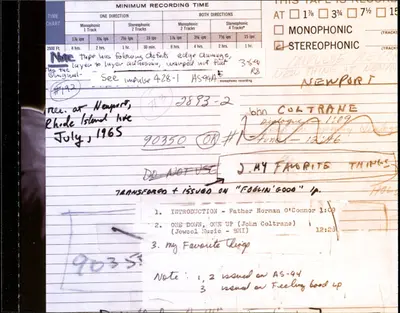 MINIMUM RECORDING TIME
TAPE CHART
ONE DIRECTION
BOTH DIRECTIONS
Monophonic 1 Track
Stereophonic 2 Tracks
Monophonic 2 Tracks
Stereophonic 4 Tracks
THIS TAPE IS RECORDED
AT 1⅞ 3¾ 7½ 15
MONOPHONIC
STEREOPHONIC
Note Tape has following defects edge damage,
layer to layer adhesion, warped not flat
original
See impulse 428-1 AS-94A
#192
2893-2
NEWPORT
rec. at Newport,
Rhode Island live
July, 1965
John COLTRANE
90350 OK #1
12:46
DO NOT USE
2. MY FAVORITE THINGS
TRANSFERED + ISSUED ON "FEELIN' GOOD" lp.
1. INTRODUCTION - Father Norman O'Connor 1:00
2. ONE DOWN, ONE UP (John Coltrane)
(Jowcol Music - BMI) 12:28
3. My Favorite Things
90353
Note: 1, 2 issued on AS-94
3 issued on Feeling Good lp